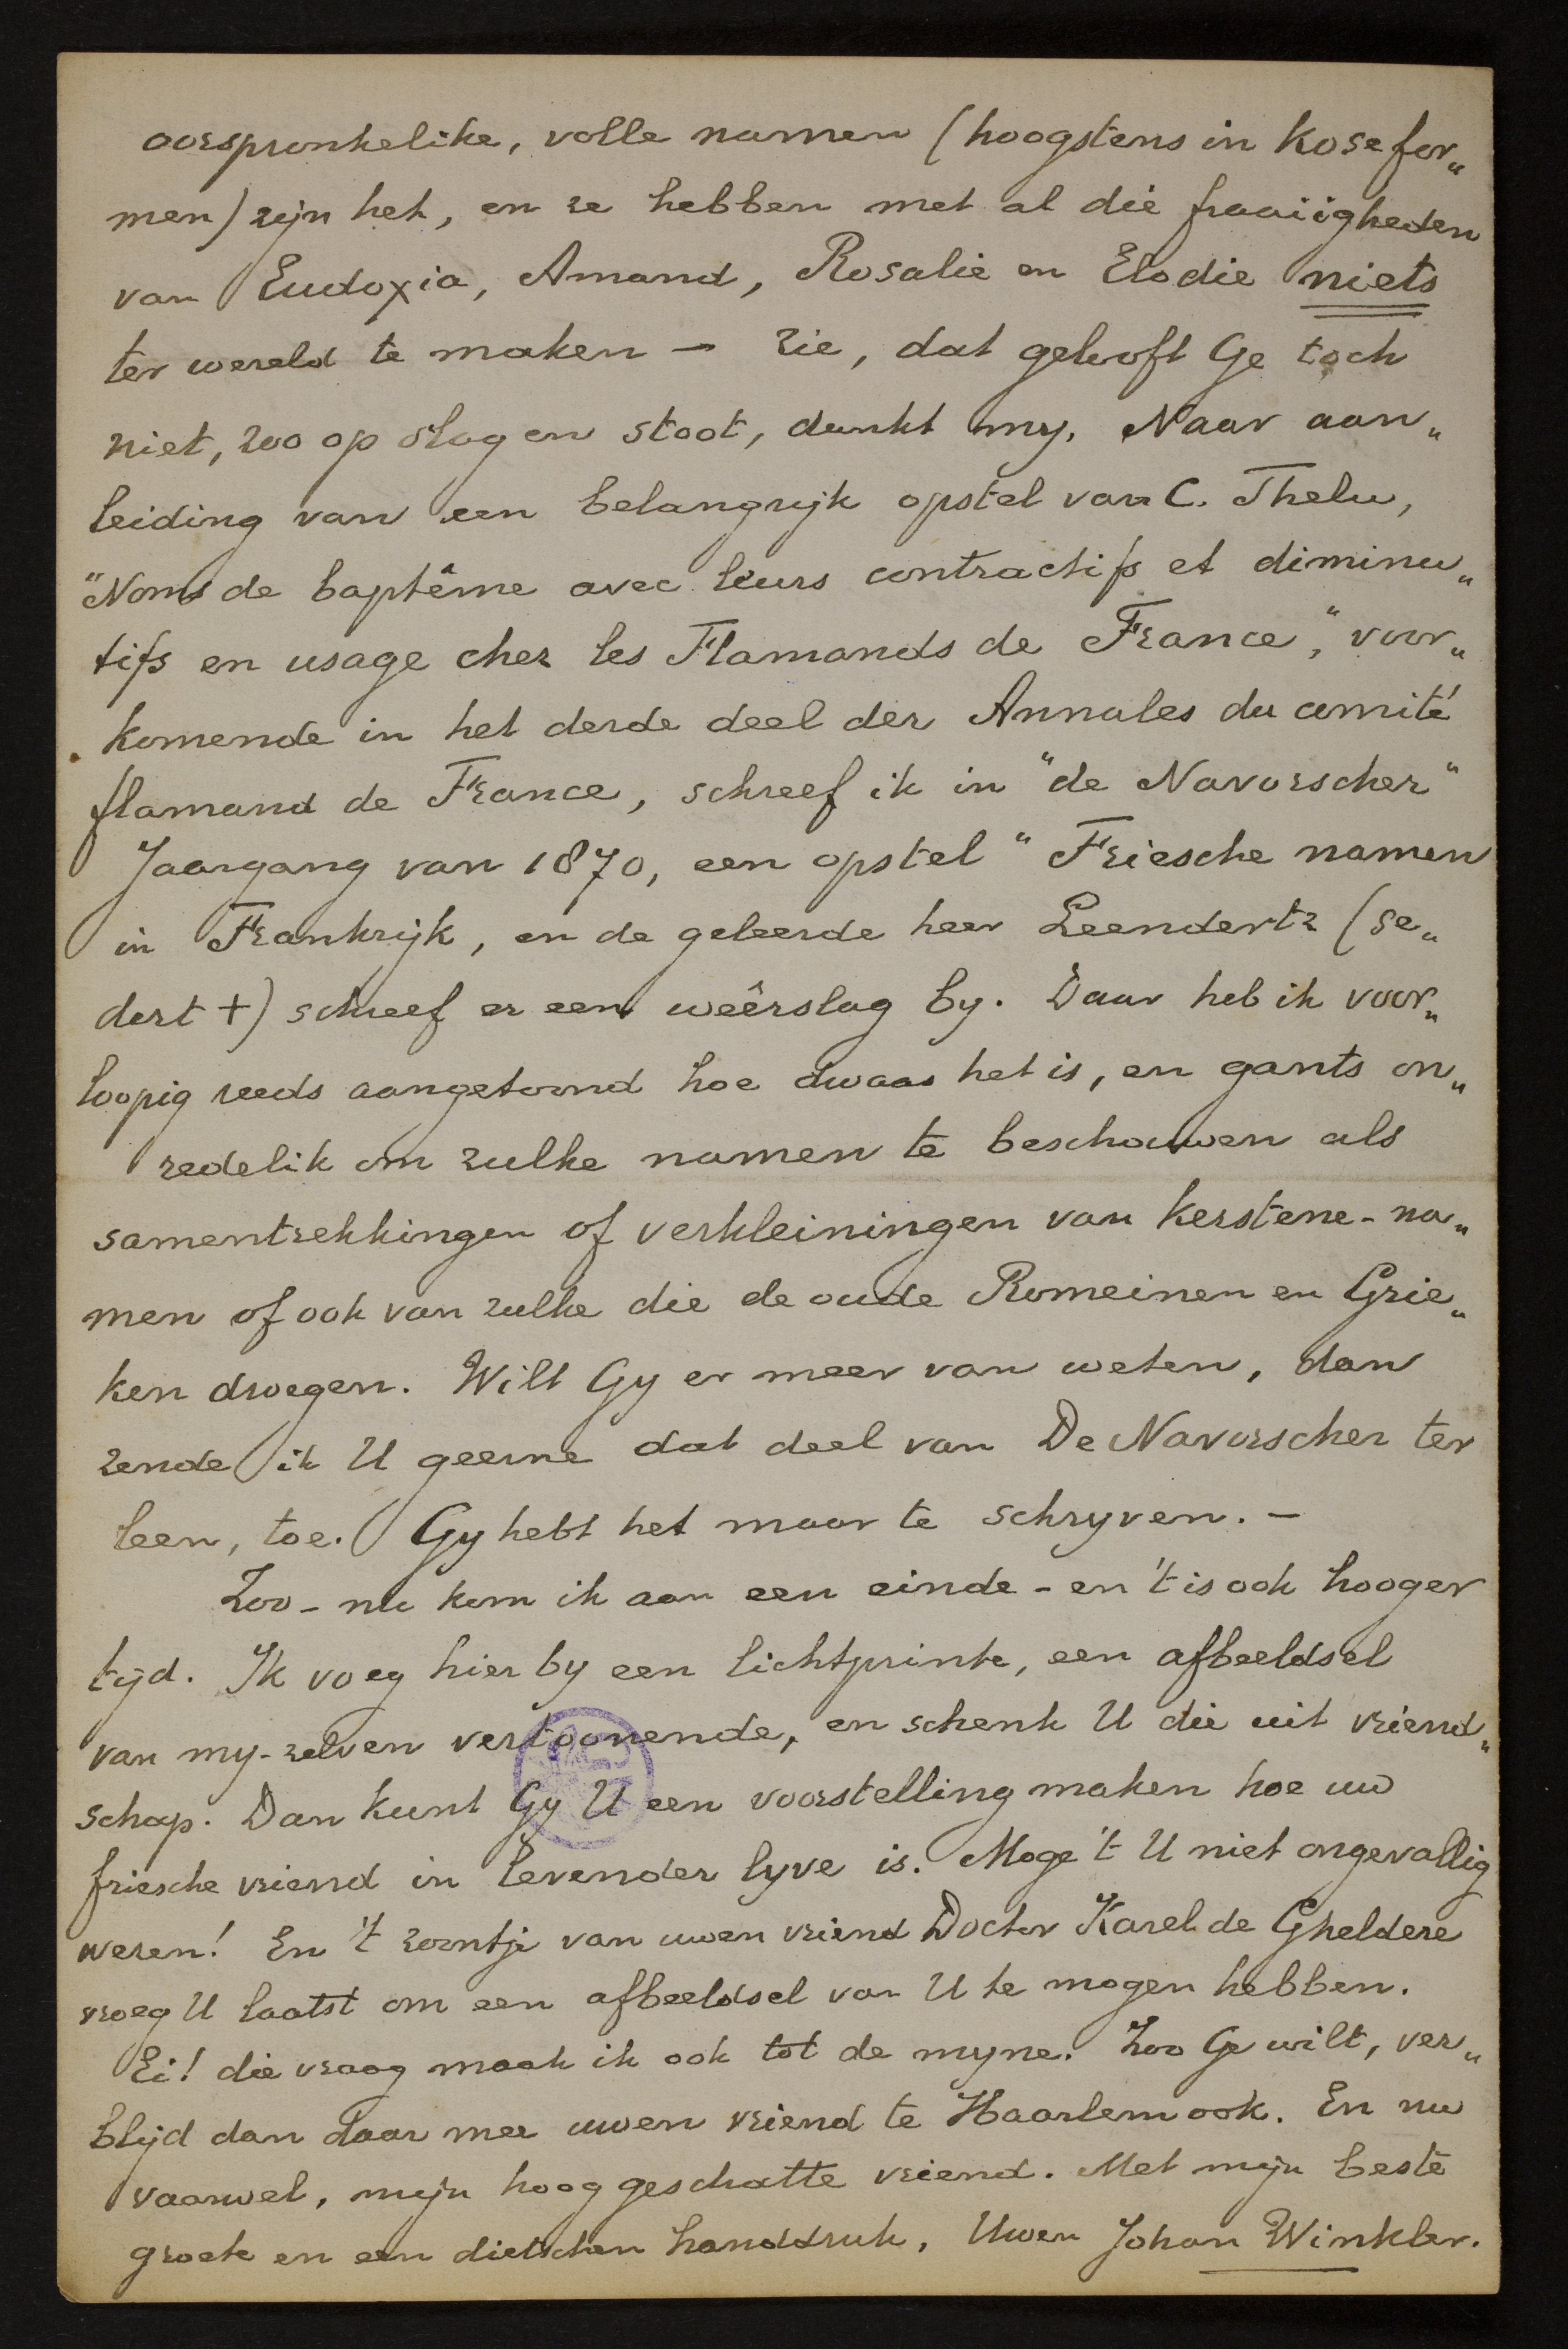 oorspronkelike, volle namen (hoogstens in kosefor„
men) zijn het, en ze hebben met al die fraaiigheden
van Eudoxia, Amand, Rosalie en Elodie niets
ter wereld te maken — zie, dat gelooft Ge toch
niet, zoo op slag en stoot, dunkt my. Naar aan„
leiding van een belangrijk opstel van C. Thelu,
"Noms de baptême avec leurs contractifs et diminu„
tifs en usage chez les Flamands de France," voor„
komende in het derde deel der Annales du comité
flamand de France, schreef ik in "de Navorscher"
Jaargang van 1870, een opstel "Friesche namen
in Frankrijk, en de geleerde heer Leendertz (se„
dert †) schreef er een weêrslag by. Daar heb ik voor„
loopig reeds aangetoond hoe dwaas het is, en gants on„
redelik om zulke namen te beschouwen als
samentrekkingen of verkleiningen van kerstene-na„
men of ook van zulke die de oude Romeinen en Grie„
ken droegen. Wilt Gy er meer van weten, dan
zende ik U geerne dat deel van De Navorscher ter
leen, toe. Gy hebt het maar te schryven. —
Zoo - nu kom ik aan een einde - en 't is ook hooger
tijd. Ik voeg hier by een lichtprinte, een afbeeldsel
van my-zelven vertoonende, en schenk U die uit vriend„
schap. Dan kunt Gy U een voorstelling maken hoe uw
friesche vriend in levender lyve is. Moge 't U niet ongevallig
wesen! En 't zoontje van uwen vriend Doctor Karel de Gheldere
vroeg U laatst om een afbeeldsel van U te mogen hebben.
Ei! die vraag maak ik ook tot de myne. Zoo Ge wilt, ver„
blijd dan daar mee uwen vriend te Haarlem ook. En nu
vaarwel, mijn hoog geschatte vriend. Met mijn beste
groete en een dietschen handdruk, Uwen Johan Winkler.